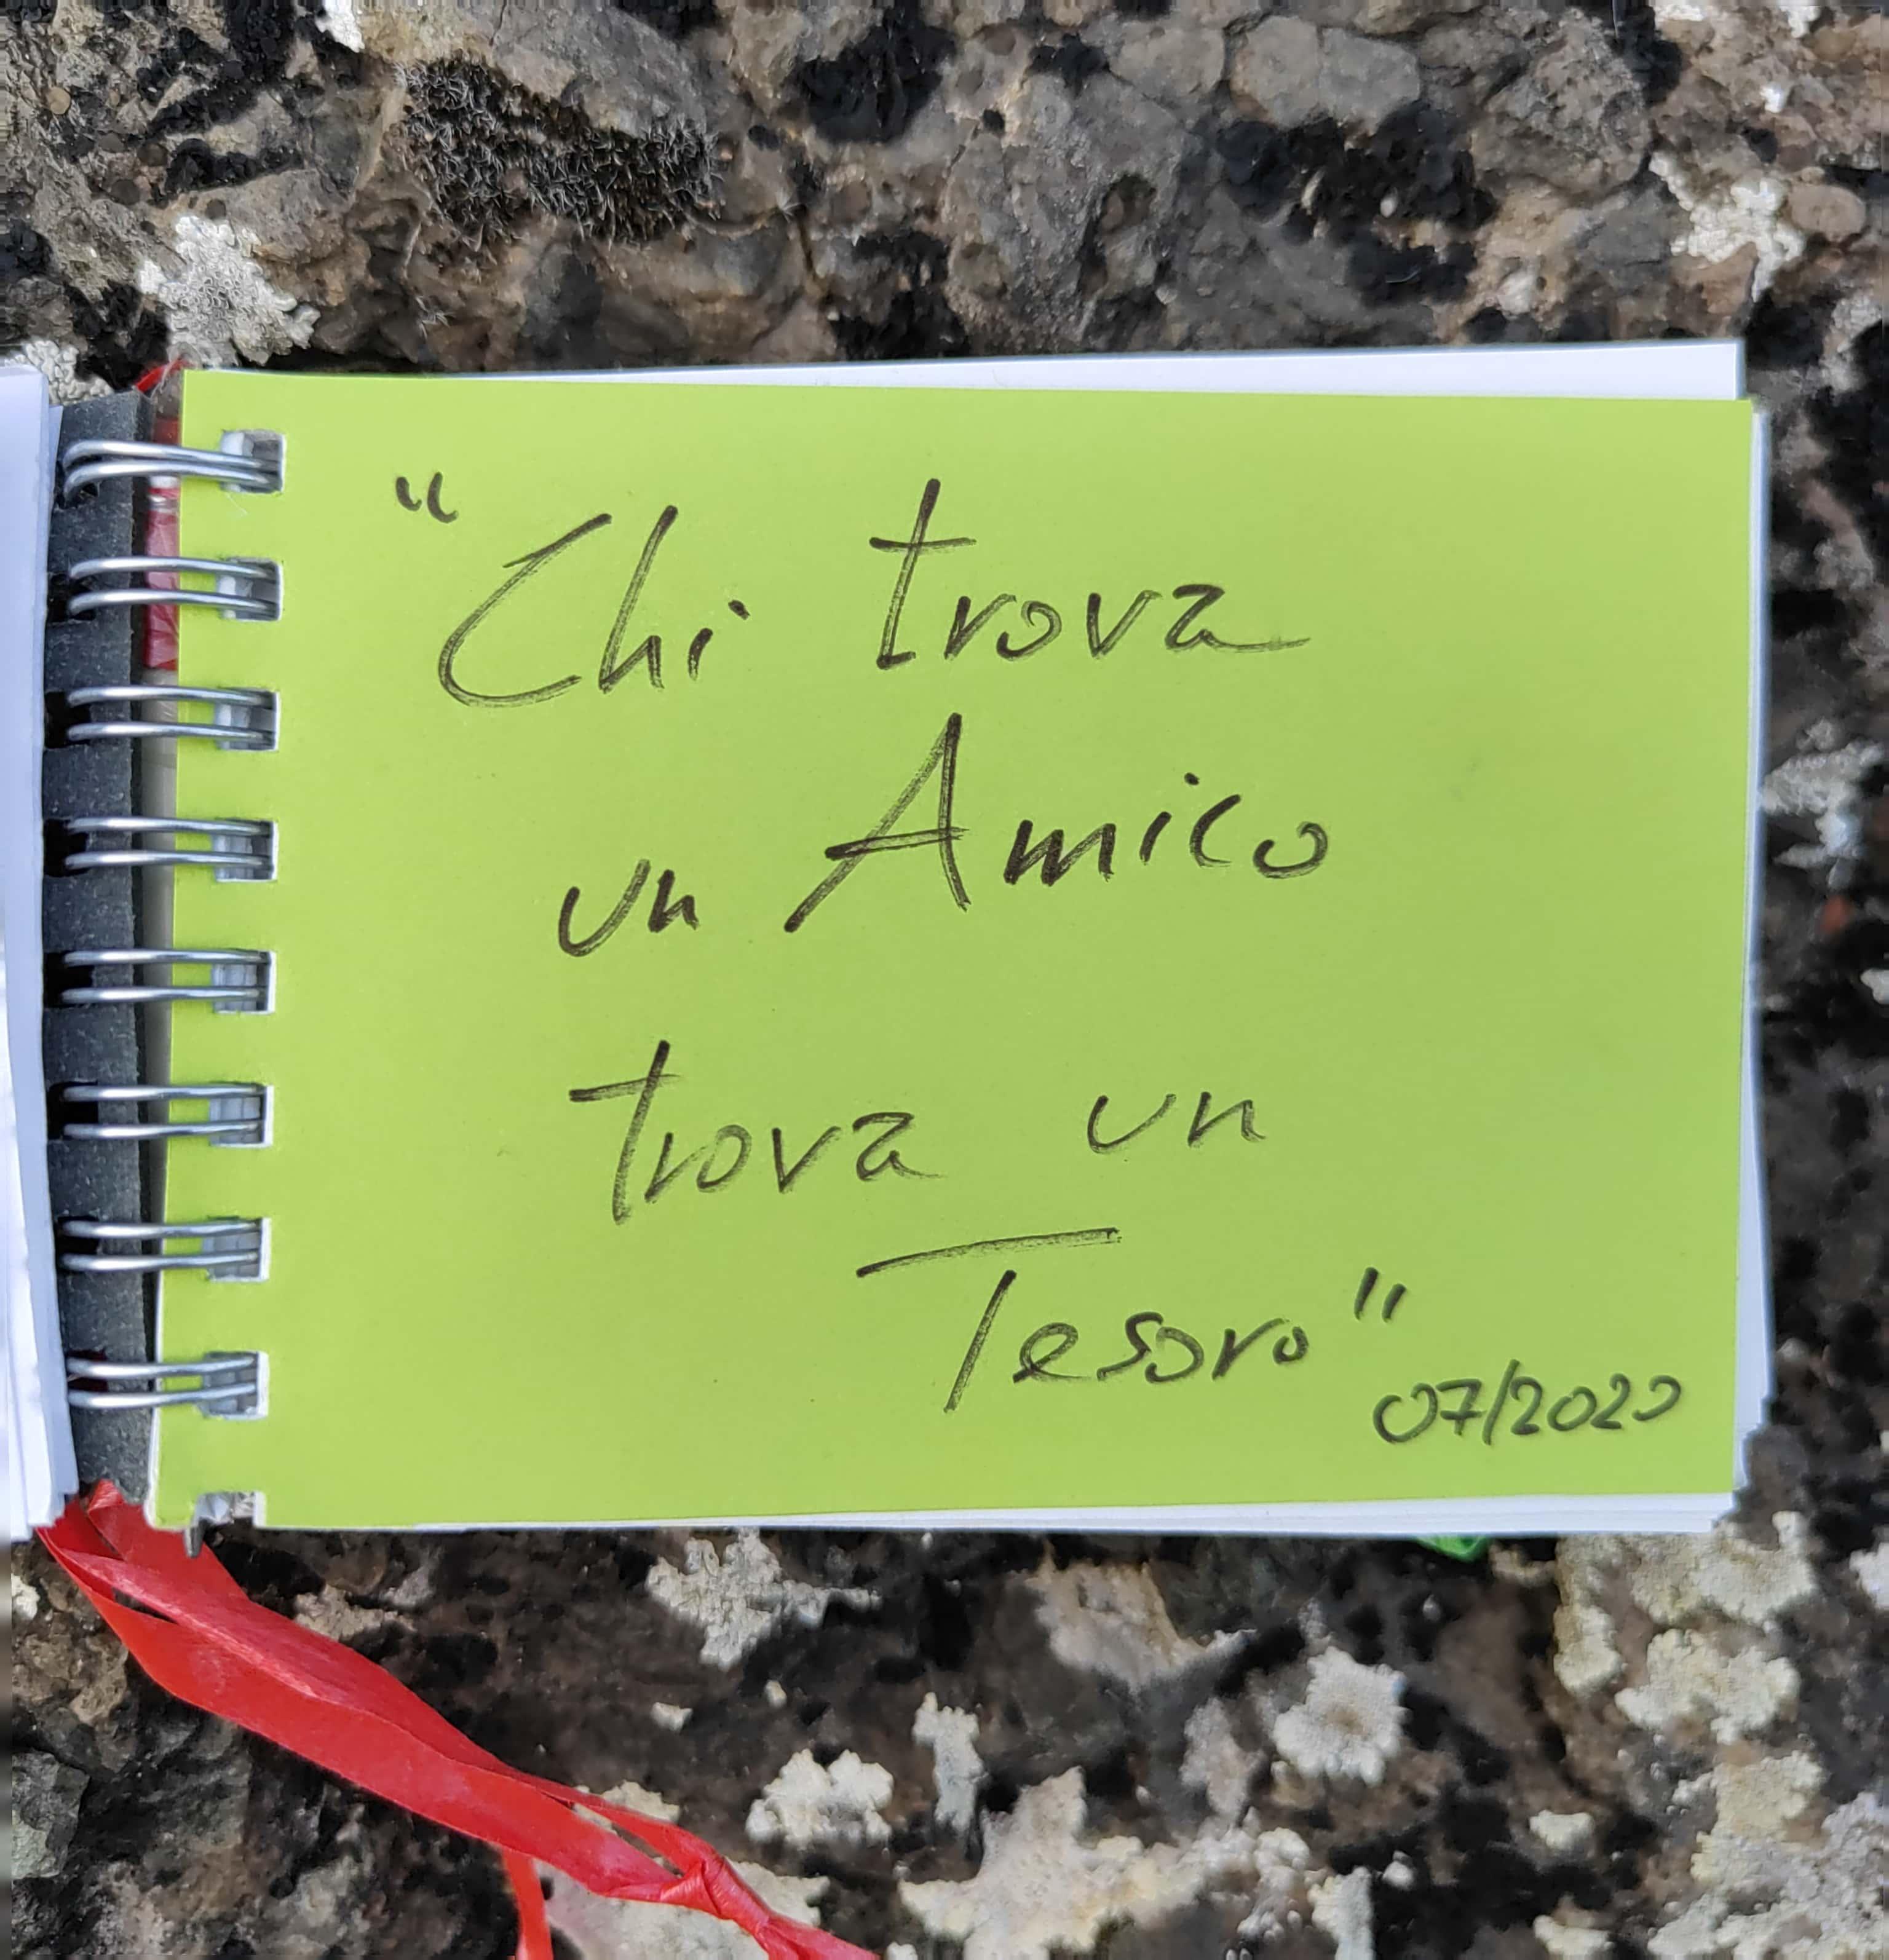 "Chi trova
un Amico
trova un
Tesoro"
07/2020